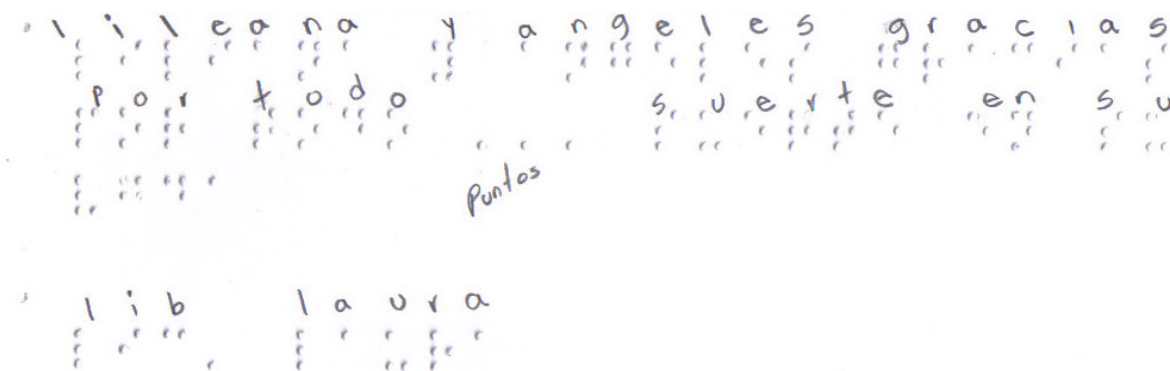 lileana y angeles gracias
por todo suerte en su
Puntos
lib laura